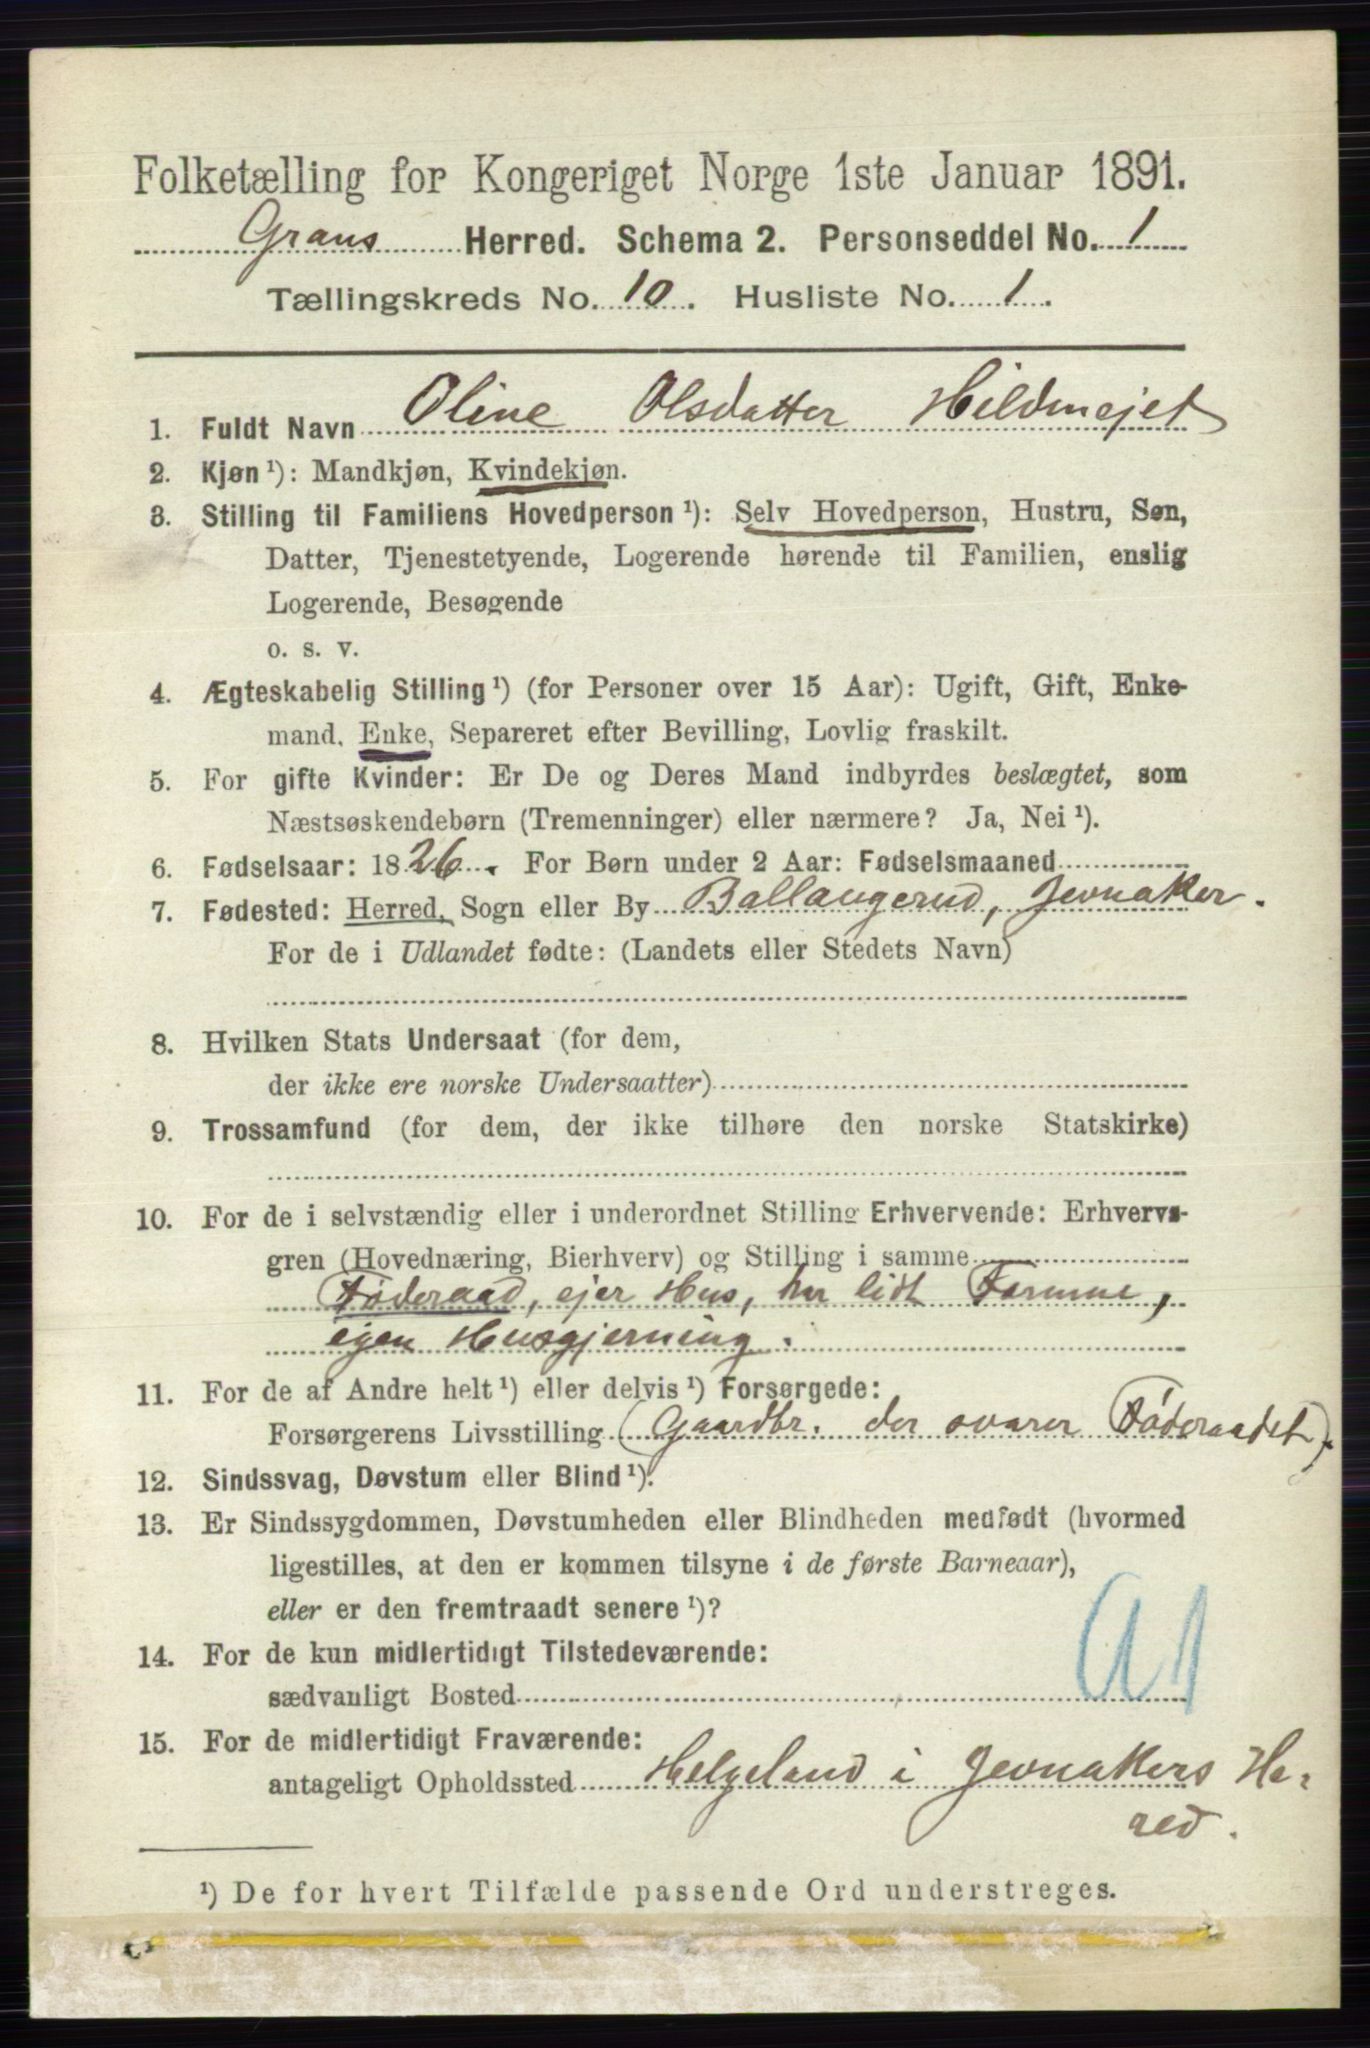 Folketælling for Kongeriget Norge 1ste Januar 1891.
Grans Herred. Schema 2. Personseddel No. 1
Tællingskreds No. 10. Husliste No. 1.
1. Fuldt Navn Oline Olsdatter Hildmejet
2. Kjøn ¹): Mandkjøn, Kvindekjøn.
3. Stilling til Familiens Hovedperson ¹): Selv Hovedperson, Hustru, Søn,
Datter, Tjenestetyende, Logerende hørende til Familien, enslig
Logerende, Besøgende
o. s. v.
4. Ægteskabelig Stilling ¹) (for Personer over 15 Aar): Ugift, Gift, Enke-
mand, Enke, Separeret efter Bevilling, Lovlig fraskilt.
5. For gifte Kvinder: Er De og Deres Mand indbyrdes beslægtet, som
Næstsøskendebørn (Tremenninger) eller nærmere? Ja, Nei ¹).
6. Fødselsaar: 1826. For Børn under 2 Aar: Fødselsmaaned
7. Fødested: Herred, Sogn eller By Ballangerud, Jevnaker.
For de i Udlandet fødte: (Landets eller Stedets Navn)
8. Hvilken Stats Undersaat (for dem,
der ikke ere norske Undersaatter)
9. Trossamfund (for dem, der ikke tilhøre den norske Statskirke)
10. For de i selvstændig eller i underordnet Stilling Erhvervende: Erhvervs-
gren (Hovednæring, Bierhverv) og Stilling i samme
Føderaad, ejer Hus, har lidt Formue,
egen Husgjerning.
11. For de af Andre helt ¹) eller delvis ¹) Forsørgede:
Forsørgerens Livsstilling (Gaardbr. der svarer Føderaadet).
12. Sindssvag, Døvstum eller Blind ¹).
13. Er Sindssygdommen, Døvstumheden eller Blindheden medfødt (hvormed
ligestilles, at den er kommen tilsyne i de første Barneaar),
eller er den fremtraadt senere ¹)?
14. For de kun midlertidigt Tilstedeværende:
sædvanligt Bosted
15. For de midlertidigt Fraværende:
antageligt Opholdssted Helgeland i Jevnakers He-
red.
¹) De for hvert Tilfælde passende Ord understreges.